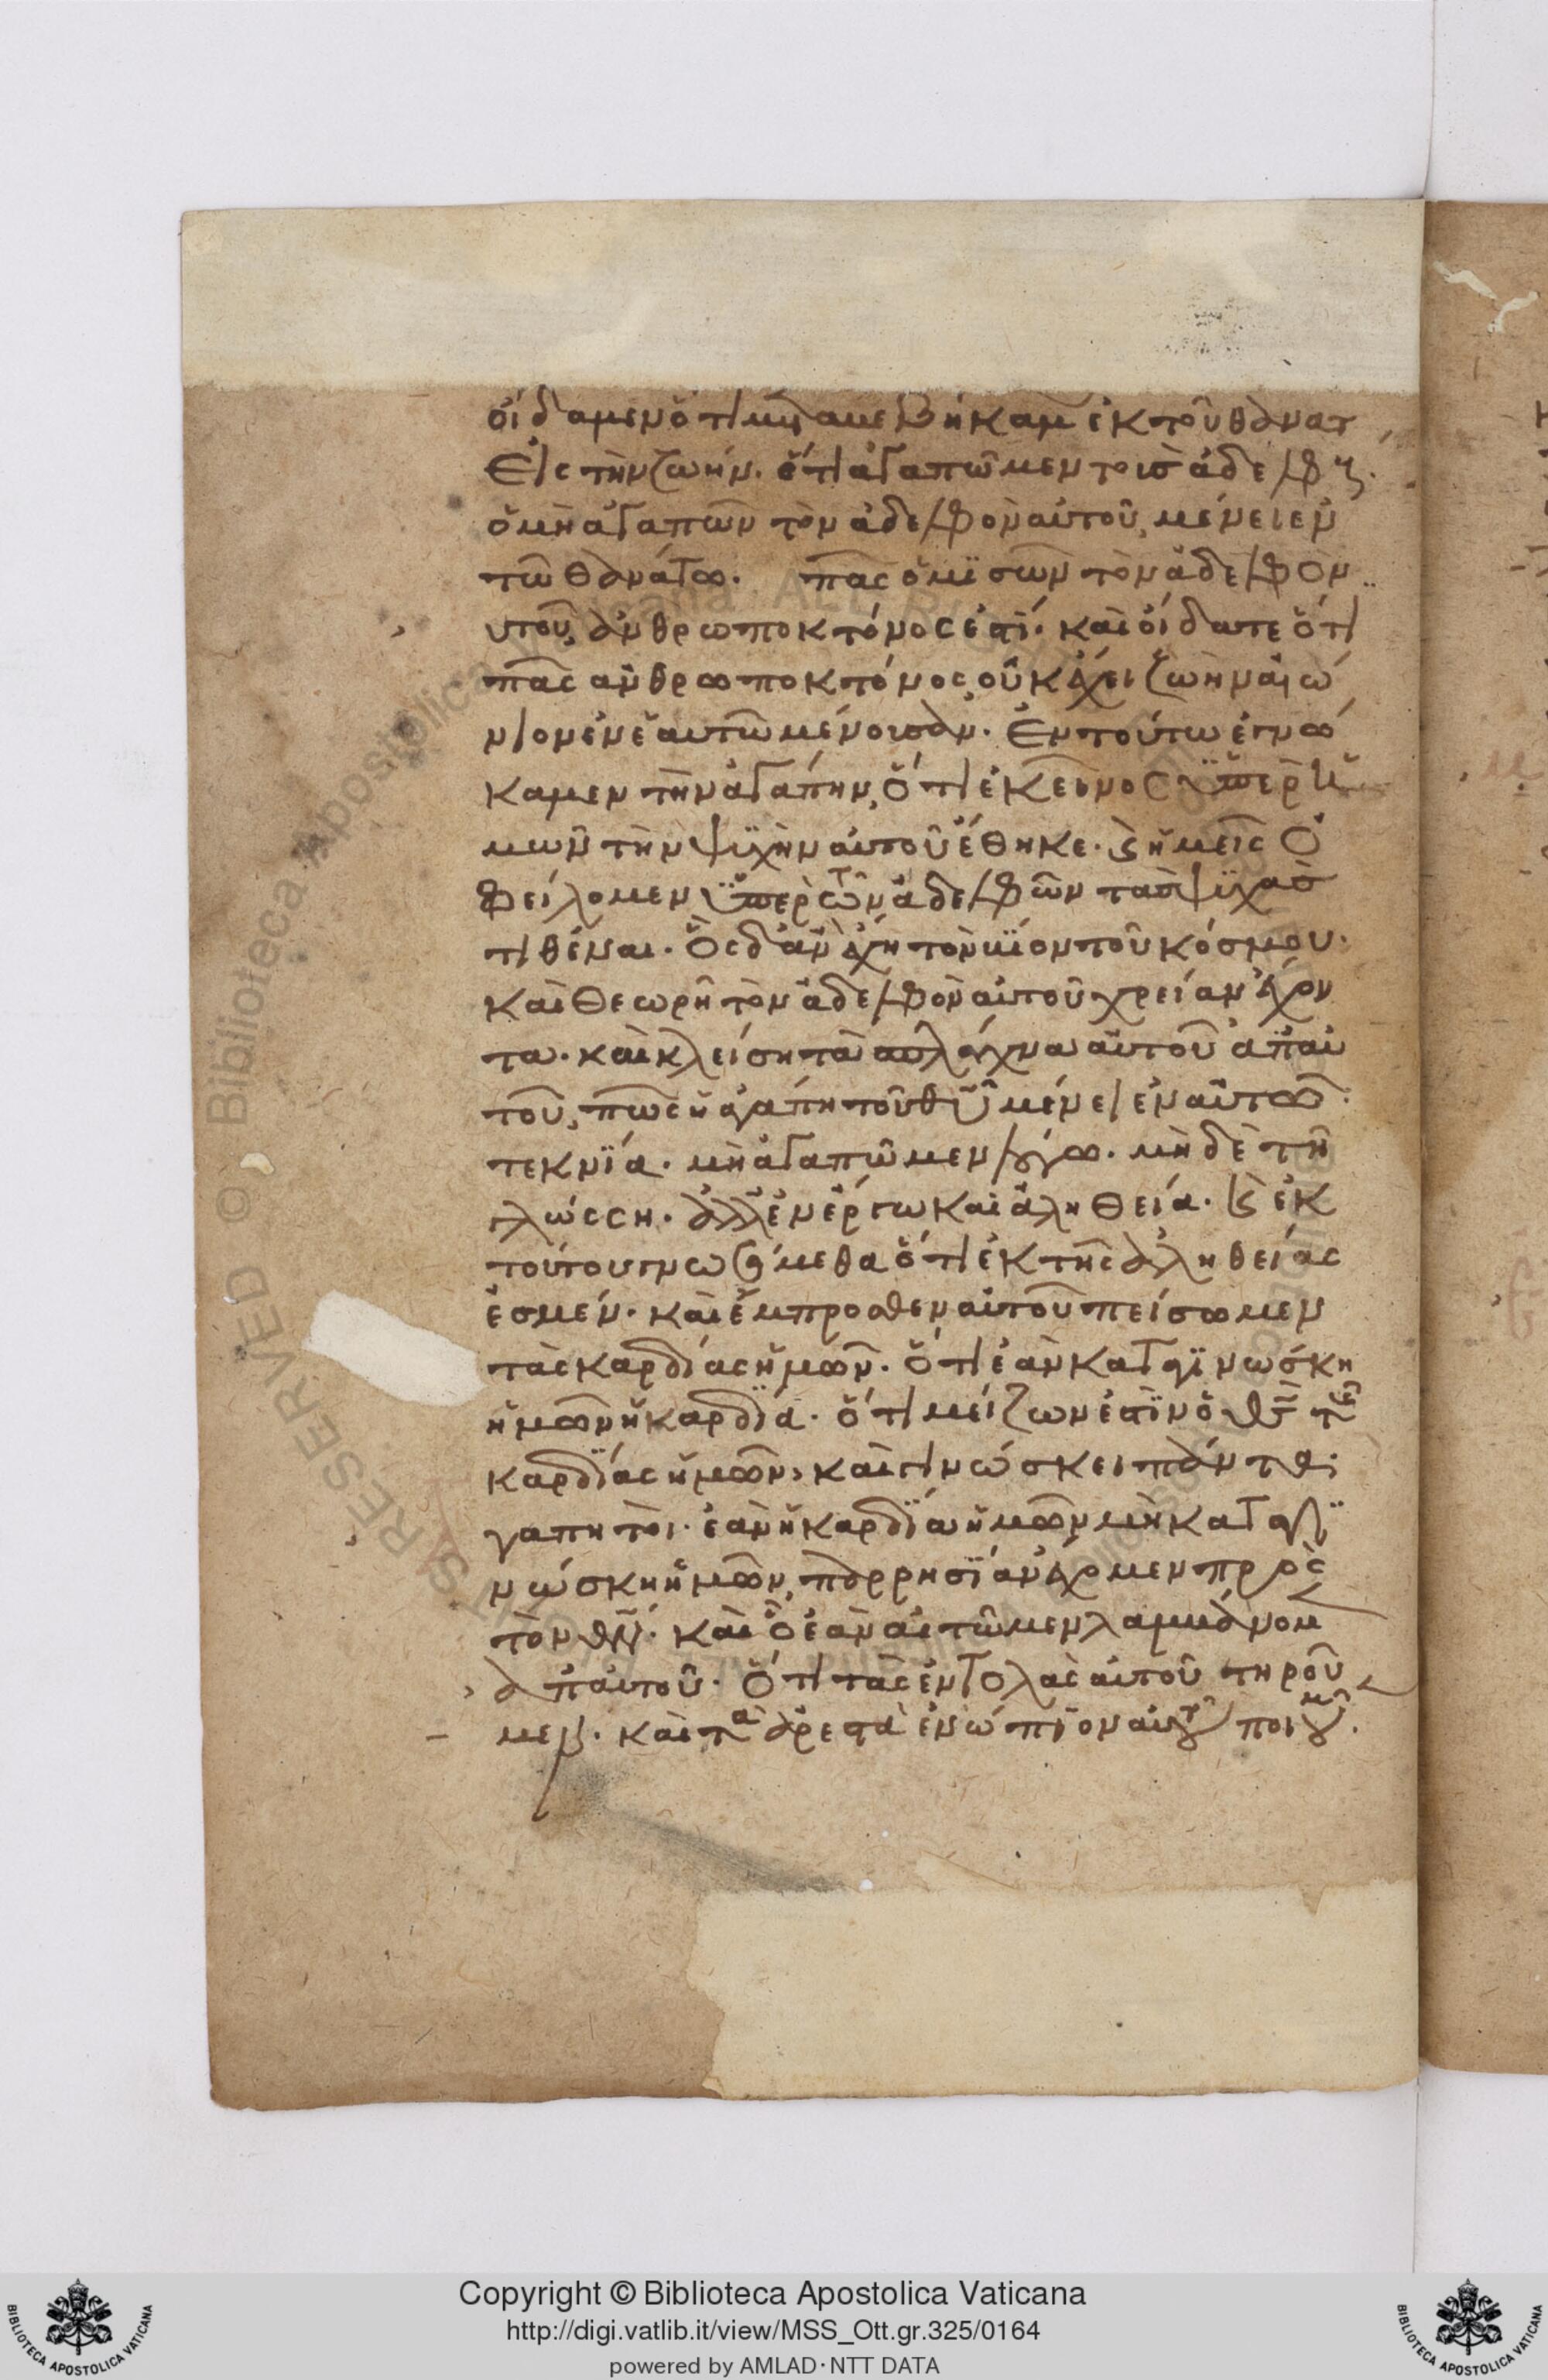 οἴδαμεν ὅτι μεταβεβήκαμεν ἐκ τοῦ θανατ
εἰς τὴν ζωήν. ὅτι ἀγαπῶμεν τοὺσ ἀδελφ
ὁ μὴ ἀγαπῶν τὸν ἀδελφὸν αὐτοῦ, μένει ἐν
τῶ θανάτω. πᾶς ὁ μισῶν τὸν ἀδελφὸν
υτοῦ, ἀνθρωποκτόνος ἐστί. καὶ οἴδατε ὅτι
πᾶς ἀνθρωποκτόνος, οὐκ ἔχει ζωὴν αἰώ
νιον ἐν ἑαυτῶ μένουσαν. Ἐν τούτω ἐγνώ
καμεν τὴν ἀγάπην, ὅτι ἐκεῖνος ϋπὲρ ἡ
μῶν τὴν ψϋχὴν αὐτοῦ ἔθηκε. ϗ ἡμεῖς ὀ
φείλομεν ϋπὲρ τῶν ἀδελφῶν τὰσ ψϋχὰσ
τιθέναι. Ὃς δ' ἂν ἔχη τὸν βίον τοῦ κόσμου.
καὶ θεωρῆ τὸν ἀδελφὸν αὐτοῦ χρείαν ἔχον
τα. καὶ κλείση τὰ σπλάγχνα αὐτοῦ ἀπ' αὐ
τοῦ, πῶς ἡ ἀγάπη τοῦ θῦ μένει ἐν αὐτῶ.
τεκνία. μὴ ἀγαπῶμεν λόγω. μηδὲ τῆ
γλώσση. ἀλλ' ἐν ἔργω καὶ ἀληθεία. ϗ ἐκ
τούτου γνωσόμεθα ὅτι ἐκ τῆς ἀληθείας
ἐσμέν. καὶ ἔμπροσθεν αὐτοῦ πείσωμεν
τὰς καρδίας ἡμῶν. ὅτι ἐὰν καταγϊνώσκη
ἡμῶν ἡ καρδία. ὅτι μείζων ἐστὶν ὁ θσ τῆς
καρδίας ἡμῶν, καὶ γινώσκει πάντα.
γαπητοὶ. ἐὰν ἡ καρδία ἡμῶν μὴ καταγϊ
νώσκη ἡμῶν, παρρησίαν ἔχομεν πρὸς
τὸν θν. καὶ ὃ ἐὰν αἰτῶμεν λαμβάνομ
ἀπ' αὐτοῦ. Ὅτι τὰς ἐντολὰς αὐτοῦ τηροῦ
μεν. καὶ τὰ ἀρεστὰ ἐνώπιον αὐτοῦ ποιοῦμ.
Copyright © Biblioteca Apostolica Vaticana
http://digi.vatlib.it/view/MSS_Ott.gr.325/0164
powered by AMLAD·NTT DATA